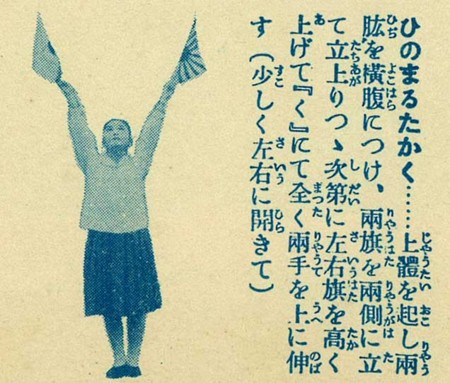 ひのまるたかく……上體を起し兩
肱を橫腹につけ、兩旗を兩側に立
て立上りつゝ次第に左右旗を高く
上げて『く』にて全く兩手を上に伸
す(少しく左右に開きて)